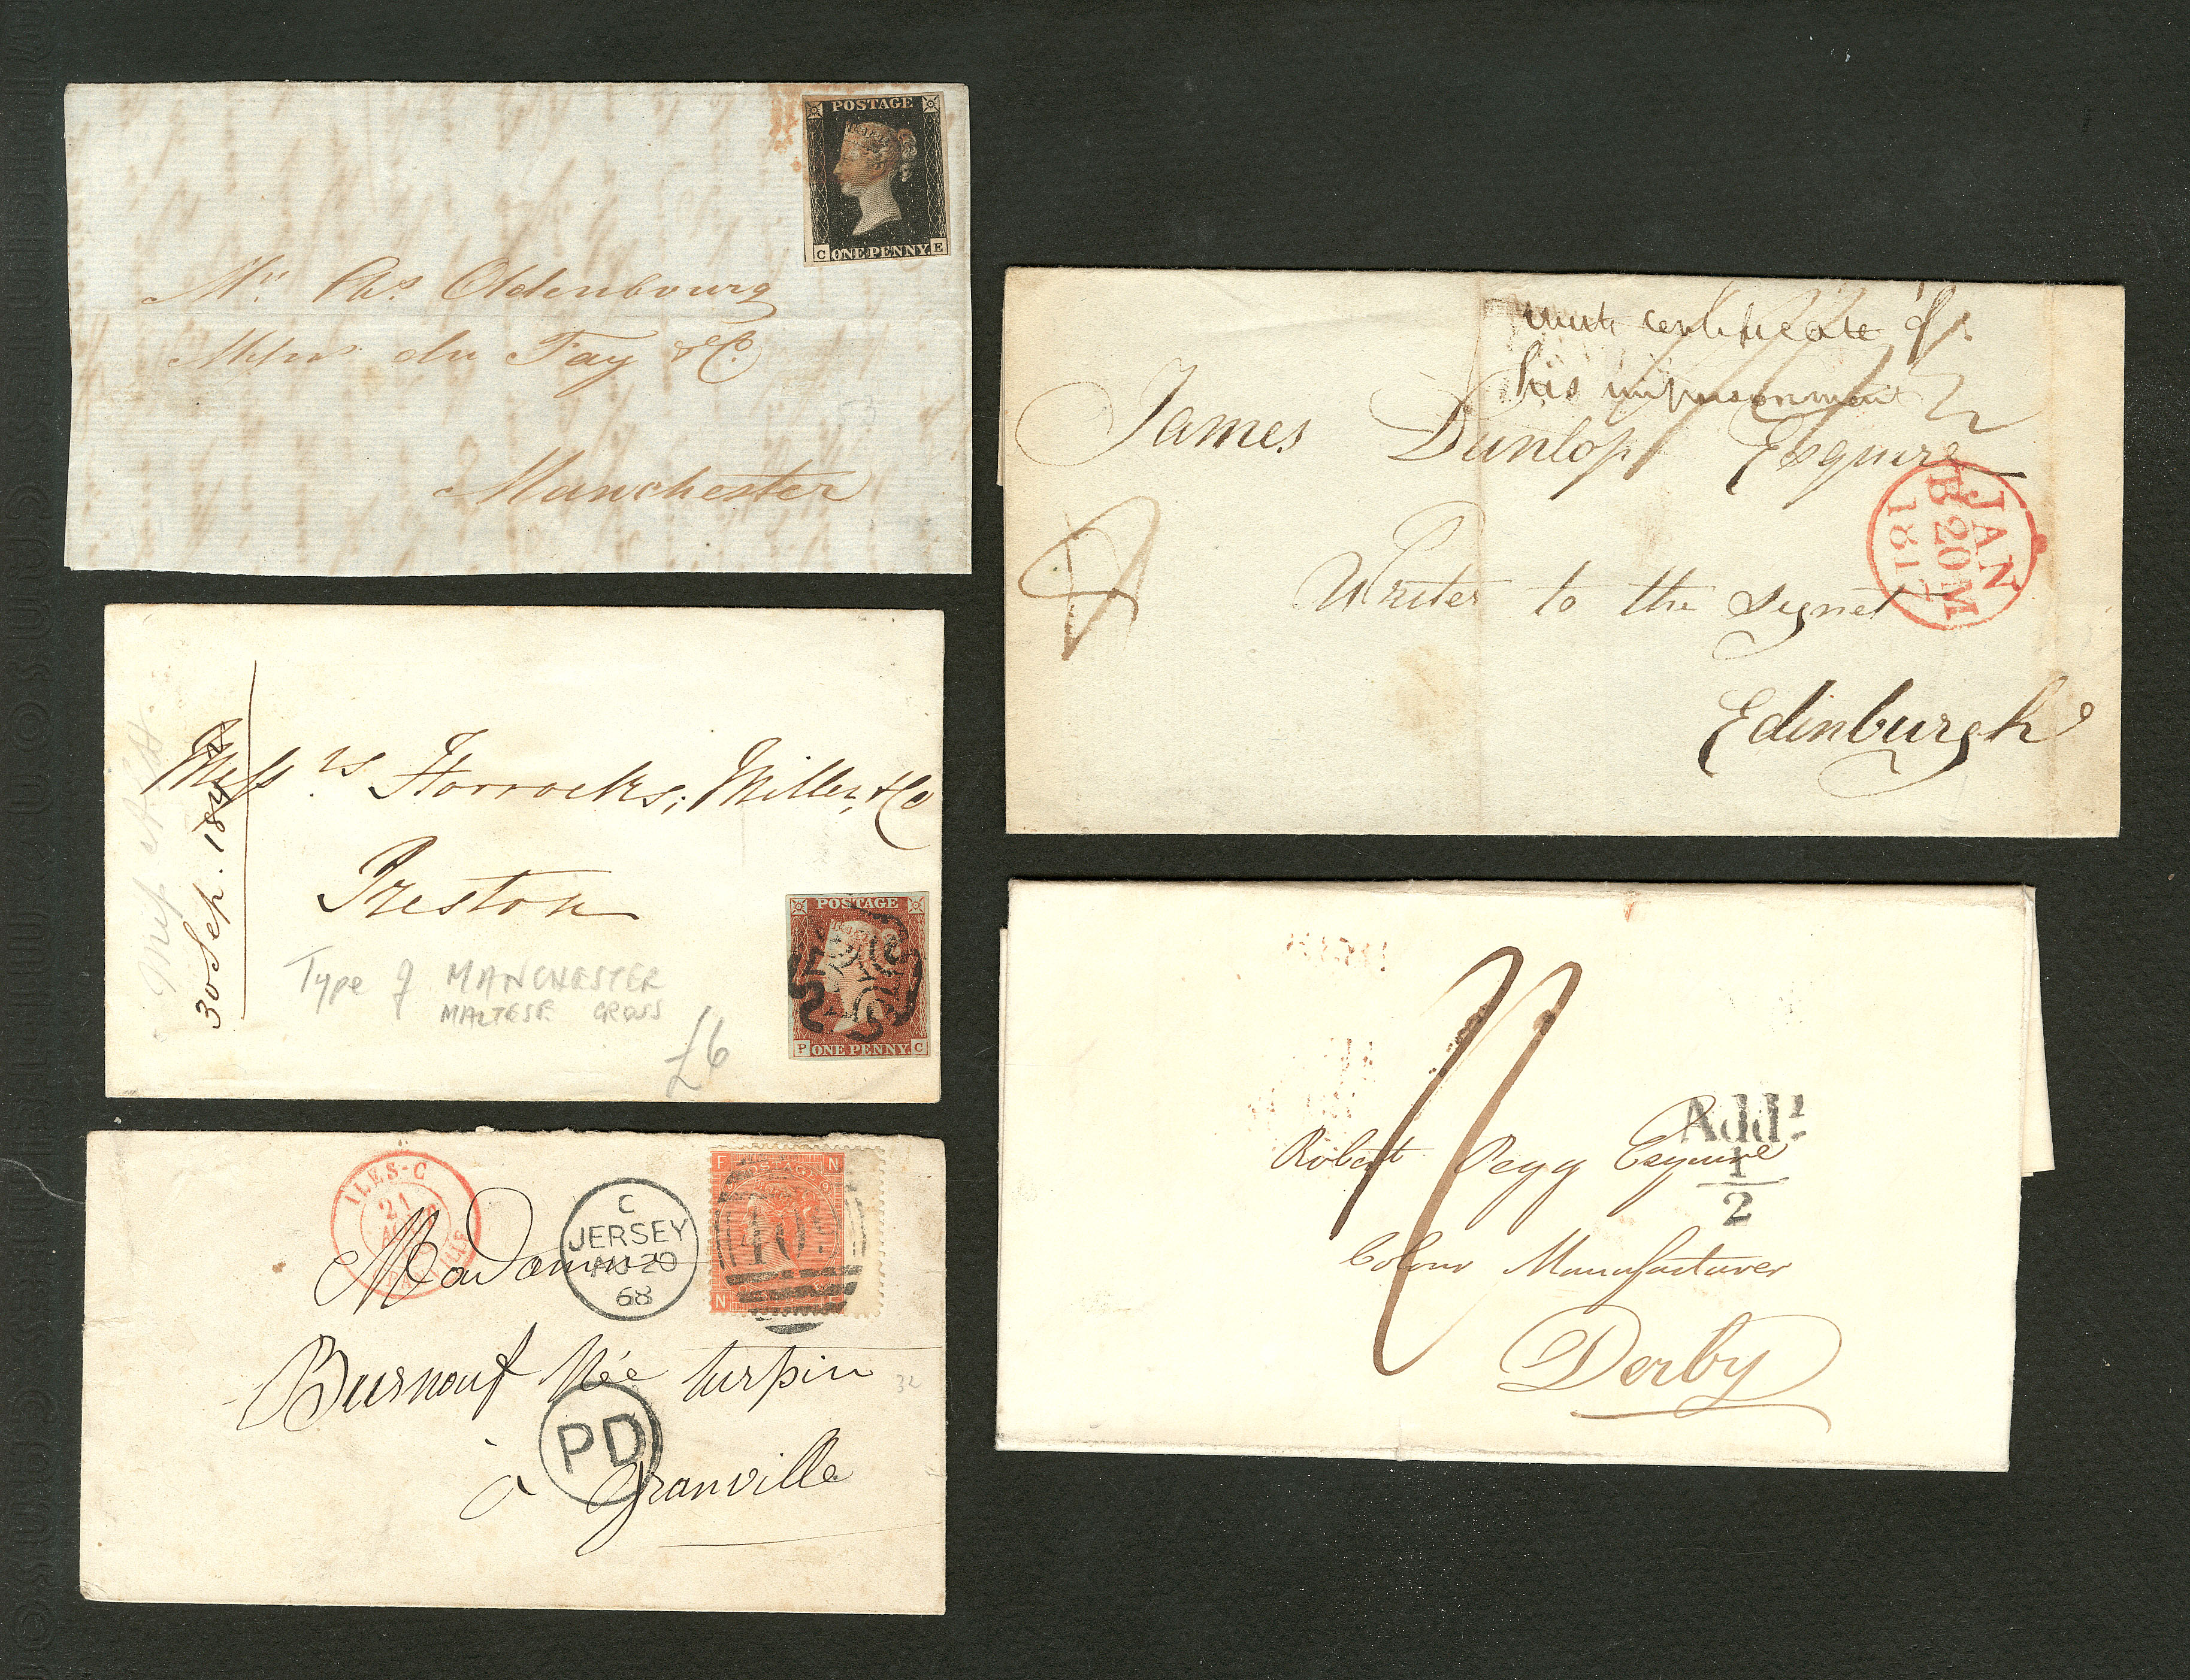 POSTAGE
C ONE PENNY. E
Mr. Chs. Oldenbourg
Messrs du Fay & Co.
Manchester
Messrs Horrocks, Miller, & Co
Preston
30 Sep. 184
Type 9 MANCHESTER
MALTESE CROSS
£6
POSTAGE
P ONE PENNY. C
ALES-C
21
C
JERSEY
AU 20
68
F N
POSTAGE
40
N F
Madame
Burnouf Née turpin
PD
à Granville
32
with certificate of
his imprisonment
James Dunlop Esquire
JAN
B 20 M
181
Writer to the Signet
Edinburgh
Addl
1
2
Robert Pegg Esquire
Colour Manufacturer
Derby